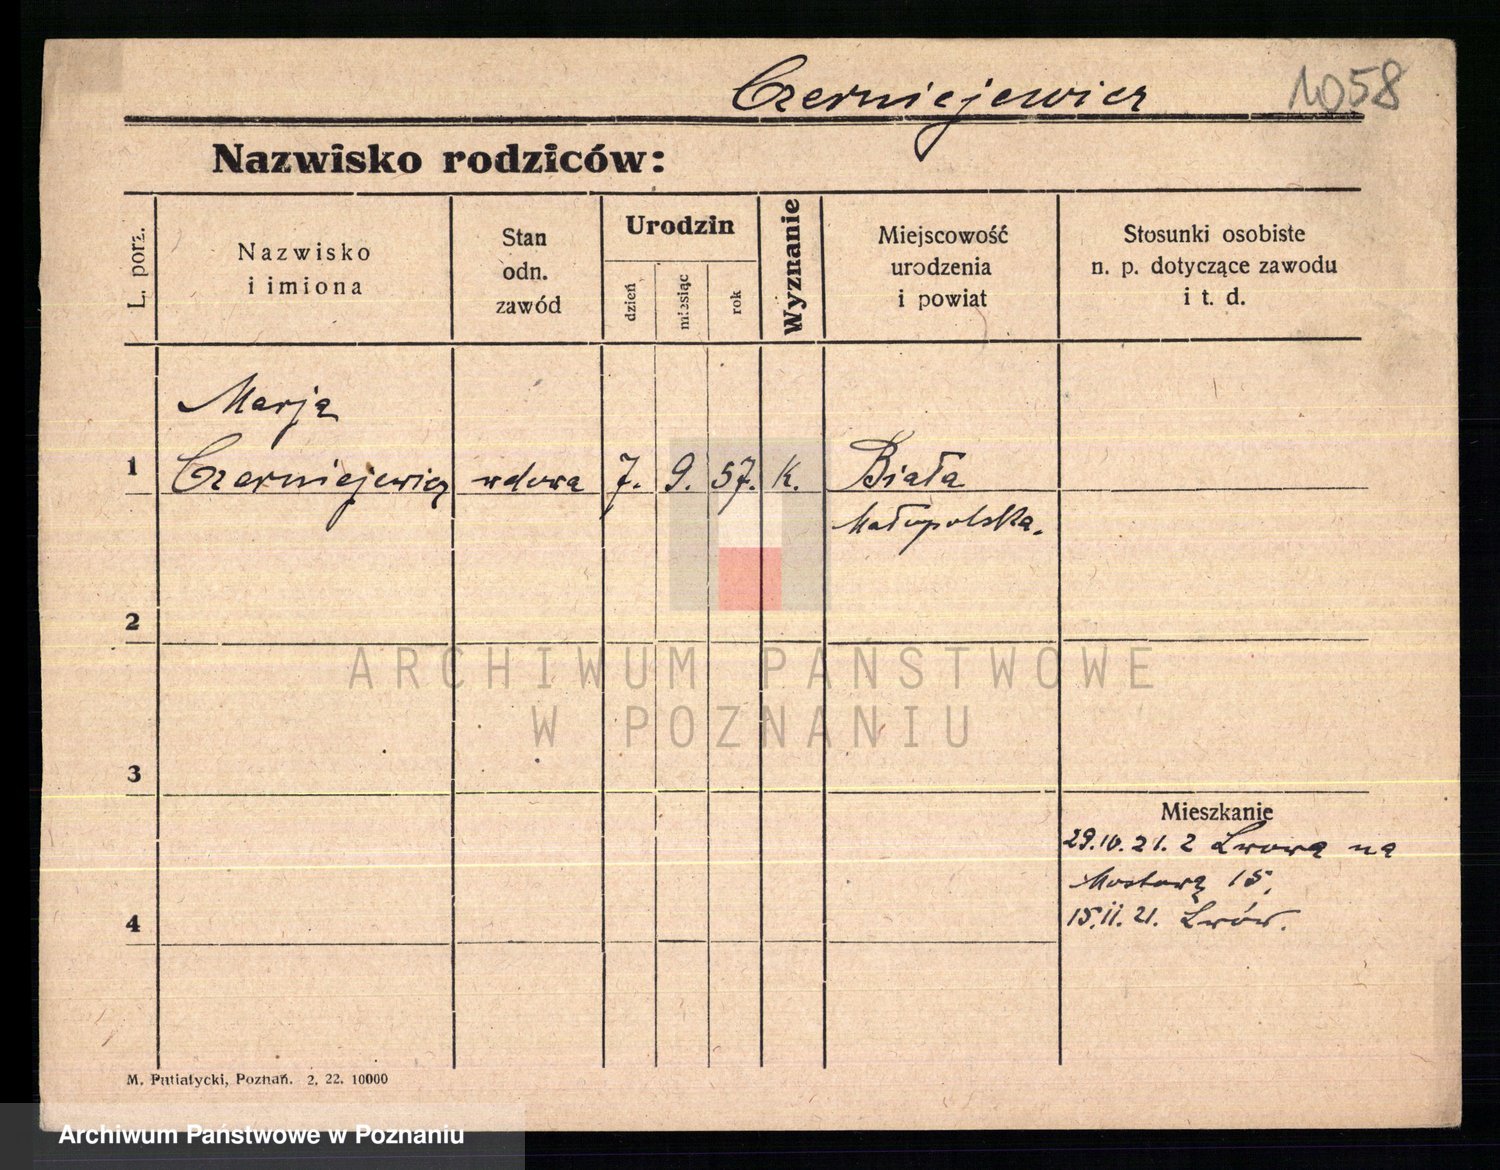 Czerniejewicz 1058
Nazwisko rodziców:
L. porz.
Nazwisko
i imiona
Stan
odn.
zawód
Urodzin
dzień
miesiąc
rok
Wyznanie
Miejscowość
urodzenia
i powiat
Stosunki osobiste
n. p. dotyczące zawodu
i t. d.
Marja
1 Czerniejewicz wdowa 7. 9. 57. K. Biała
Małopolska.
2
ARCHIWUM PAŃSTWOWE
W POZNANIU
3
Mieszkanie
29.10.21. z Lwowa na
Mostową 15.
4 15.11.21. Lwów.
M. Putiatycki, Poznań. 2, 22. 10000
Archiwum Państwowe w Poznaniu